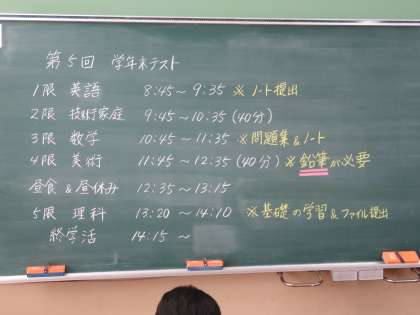 第5回 学年末テスト
1限 英語 8:45~9:35 ※ノート提出
2限 技術家庭 9:45~10:35 (40分)
3限 数学 10:45~11:35 ※問題集&ノート
4限 美術 11:45~12:35 (40分) ※鉛筆が必要
昼食&昼休み 12:35~13:15
5限 理科 13:20~14:10 ※基礎の学習&ファイル提出
終学活 14:15~